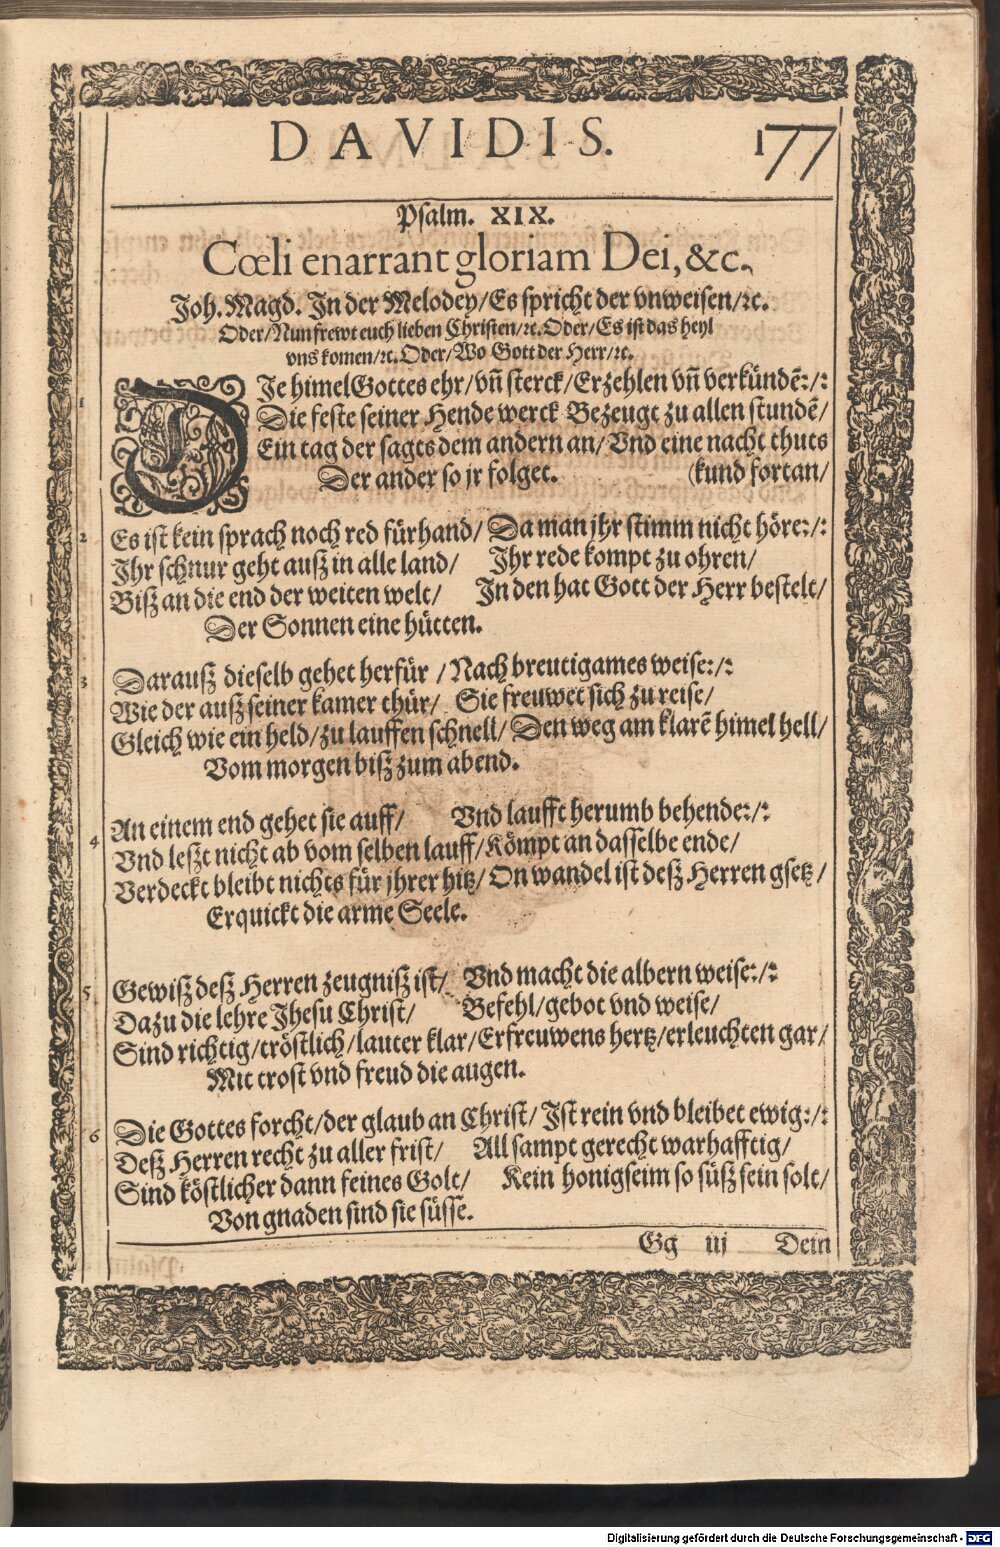 DAVIDIS. 177
Psalm. XIX.
Cœli enarrant gloriam Dei, &c.
Joh. Magd. In der Melodey/Es spricht der vnweisen/ꝛc.
Oder/Nun frewt euch lieben Christen/ꝛc. Oder/Es ist das heyl
vns komen/ꝛc. Oder/Wo Gott der Herr/ꝛc.
1 DJe himel Gottes ehr/vñ sterck/Erzehlen vñ verkündẽ:/:
Die feste seiner Hende werck Bezeugt zu allen stundẽ/
Ein tag der sagts dem andern an/Vnd eine nacht thuts
Der ander so jr folget. (kund fortan/
2 Es ist kein sprach noch red fürhand/ Da man jhr stimm nicht höre:/:
Ihr schnur geht außin alle land/ Ihr rede kompt zu ohren/
Biß an die end der weiten welt/ In den hat Gott der Herr bestelt/
Der Sonnen eine hütten.
3 Darauß dieselb gehet herfür /Nach breutigames weise:/:
Wie der auß seiner kamer thür/ Sie freuwet sich zu reise/
Gleich wie ein held/zu lauffen schnell/ Den weg am klarẽ himel hell/
Vom morgen biß zum abend.
4 An einem end gehet sie auff/ Vnd laufft herumb behende:/:
Vnd leßt nicht ab vom selben lauff/Kömpt an dasselbe ende/
Verdeckt bleibt nichts für jhrer hitz/On wandel ist deß Herren gsetz/
Erquickt die arme Seele.
5 Gewiß deß Herren zeugniß ist/ Vnd macht die albern weise:/:
Dazu die lehre Jhesu Christ/ Befehl/gebot vnd weise/
Sind richtig/tröstlich/lauter klar/Erfreuwens hertz/erleuchten gar/
Mit trost vnd freud die augen.
6 Die Gottes forcht/der glaub an Christ/ Ist rein vnd bleibet ewig:/:
Deß Herren recht zu aller frist/ All sampt gerecht warhafftig/
Sind köstlicher dann feines Golt/ Kein honigseim so süß sein solt/
Von gnaden sind sie süsse.
Gg iij Dein
Digitalisierung gefördert durch die Deutsche Forschungsgemeinschaft - DFG